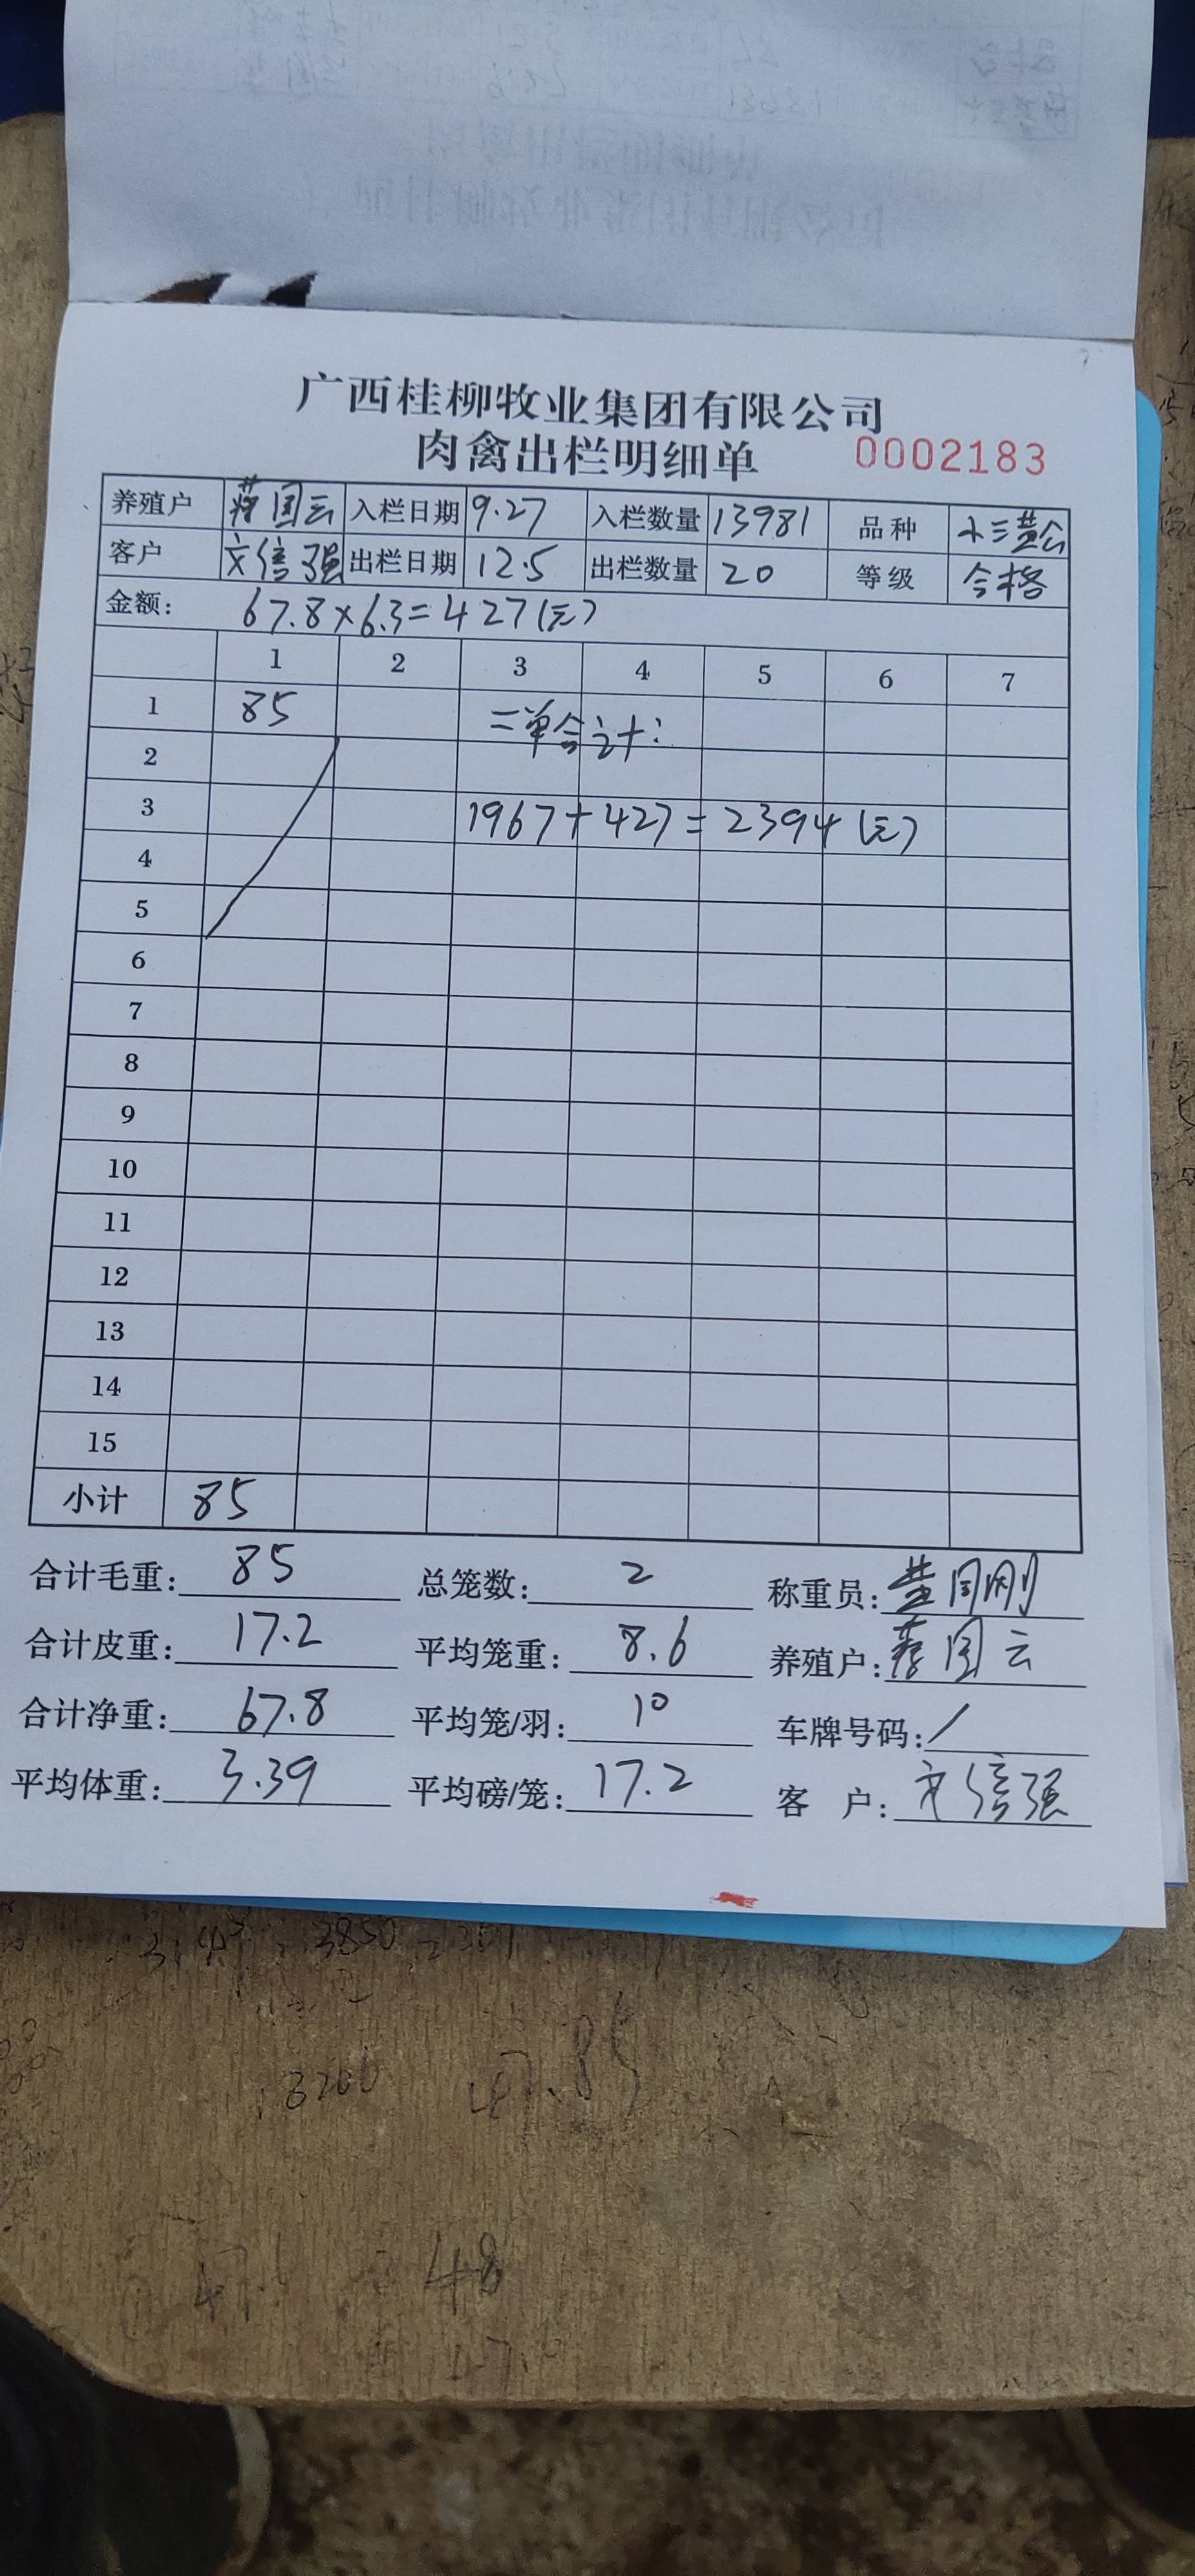 广西桂柳牧业集团有限公司
肉禽出栏明细单 0002183
养殖户 蒋国云 入栏日期 9.27 入栏数量 13981 品种 小三黄公
客户 文信强 出栏日期 12.5 出栏数量 20 等级 合格
金额: 67.8×6.3=427(元)
1 2 3 4 5 6 7
1 85 二单合计:
2
3 1967+427=2394(元)
4
5
6
7
8
9
10
11
12
13
14
15
小计 85
合计毛重: 85 总笼数: 2 称重员:
合计皮重: 17.2 平均笼重: 8.6 养殖户: 蒋国云
合计净重: 67.8 平均笼/羽: 10 车牌号码: /
平均体重: 3.39 平均磅/笼: 17.2 客 户: 文信强
3200
47.85
48